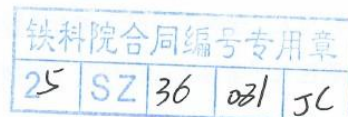 铁科院合同编号专用章
25 SZ 36 031 JC